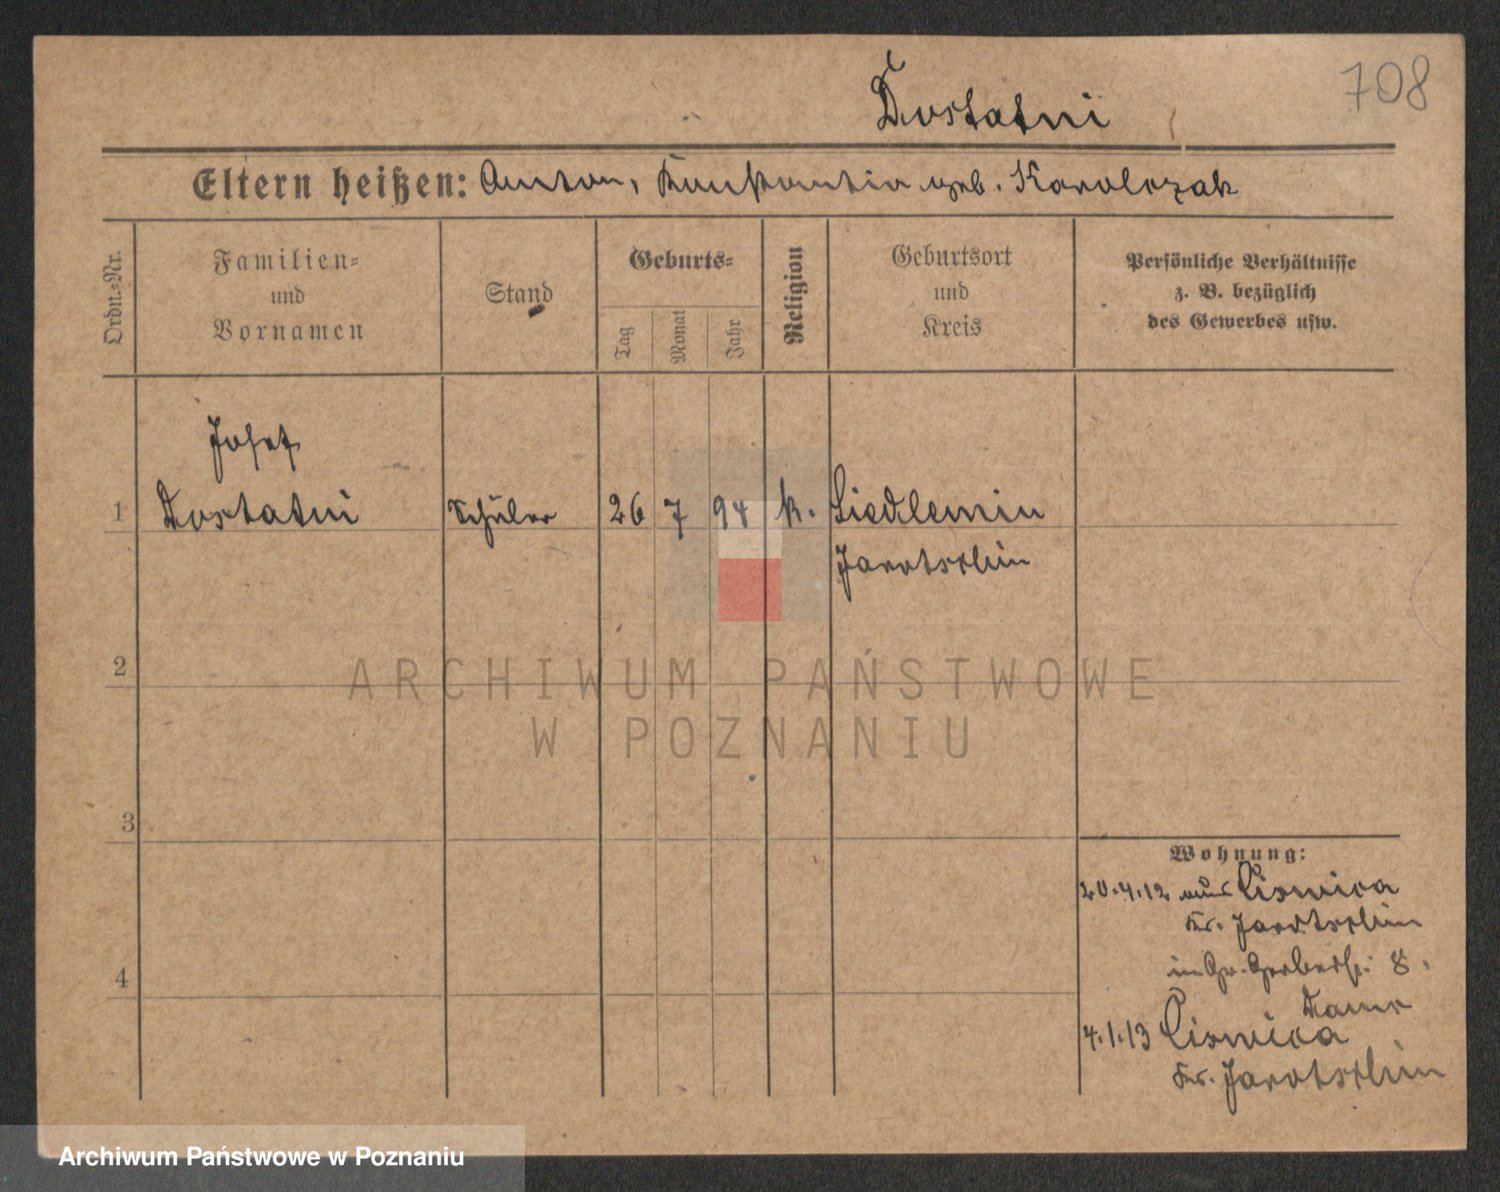 708
Dostatni
Eltern heißen: Anton, Konstantia geb. Karolczak
Ordn.=Nr.
Familien=
und
Vornamen
Stand
Geburts=
Tag
Monat
Jahr
Religion
Geburtsort
und
Kreis
Persönliche Verhältnisse
z. B. bezüglich
des Gewerbes usw.
Josef
1 Dostatni Schüler 26 7 94 k. Siedlemin
Jarotschin
2
3
4
Wohnung:
20.4.12 aus Cismica
Kr. Jarotschin
in Gr. Gerberstr. 8.
4.1.13 Cismica
Kr. Jarotschin
ARCHIWUM PAŃSTWOWE
W POZNANIU
Archiwum Państwowe w Poznaniu